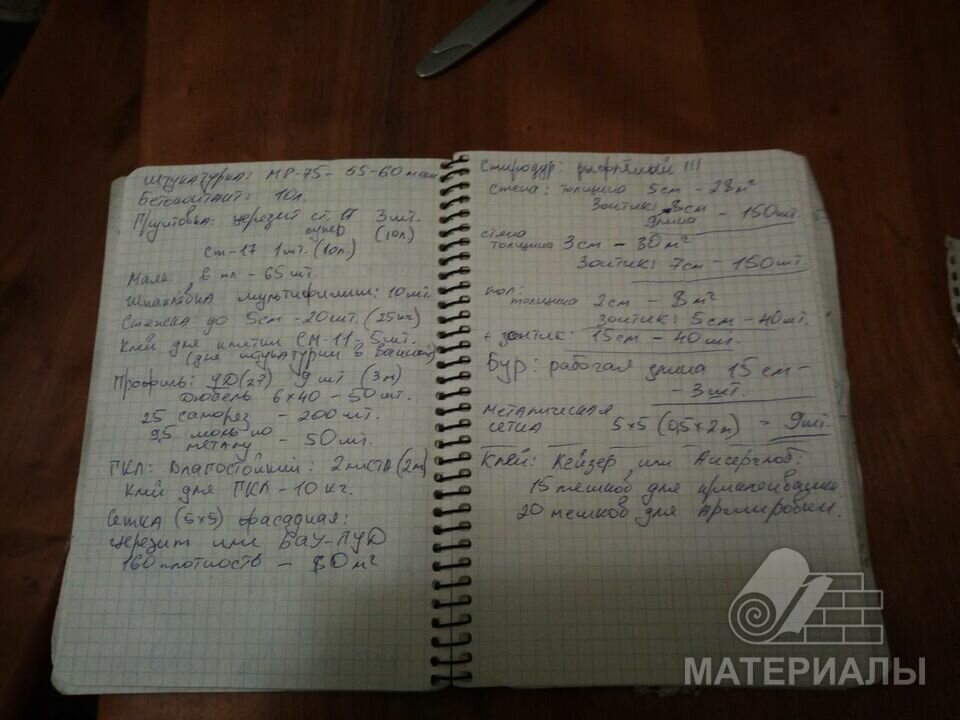 Штукатурка: МР-75- 55-60 меш
Бетоконтакт: 10л.
Грунтовка: черезит ст. 17 3шт.
супер (10л)
Ст-17 1шт. (10л)
Маяк. 65 шт.
Шпаклёвка мультифиниш: 10шт
Стяжка: до 5см -20шт. (25кг)
Клей для плитки СМ-11- 5шт.
(для штукатурки в ванной)
Профиль: УД(27) 9 шт (3м)
Дюбель 6х40 - 50шт.
25 саморез - 200шт.
9,5 по
металу - 50шт.
ГКЛ: Влагостойкий: 2листа (2м)
Клей для ГКЛ - 10 кг.
Сетка (5х5) фасадная:
черезит или БАУ-
160 плотность - 80м²
Стиродур: рифлёный !!!
стена: толщина 5см - 28м²
Зонтик: 8см
длина - 150шт.
стена
толщина 3см - 30м²
Зонтик: 7см - 150шт.
пол:
толщина 2см - 8м²
зонтик: 5см - 40шт.
+ зонтик: 15см - 40шт.
Бур: рабочая длина 15см -
- 3шт.
Металическая
сетка 5х5 (0,5х2м) - 9шт.
Клей: Кейзер или Ансерглоб:
15 мешков для приклеивания
20 мешков для Армировки.
МАТЕРИАЛЫ